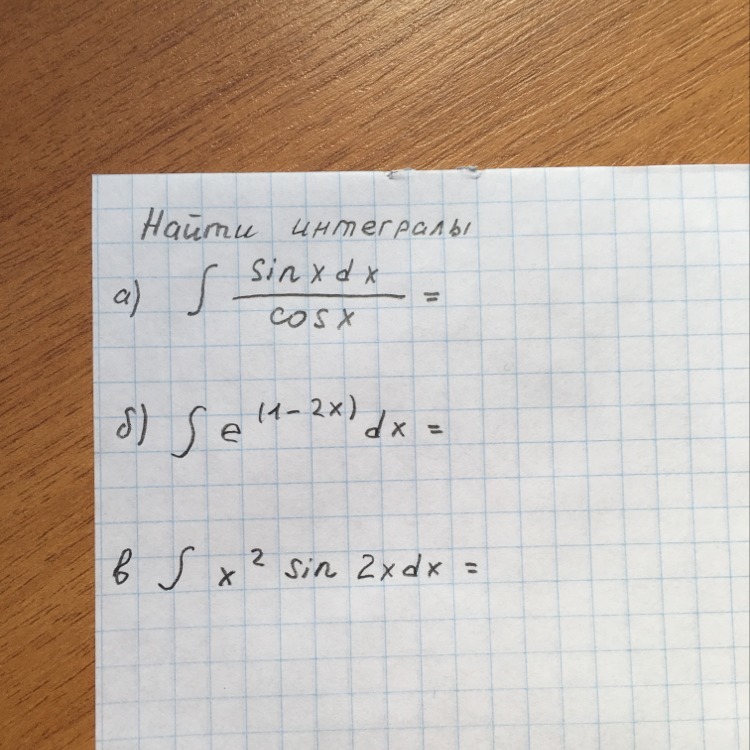 Найти интегралы
а) ∫ sin x dx / cos x =
б) ∫ e^(1-2x) dx =
в ∫ x² sin 2x dx =